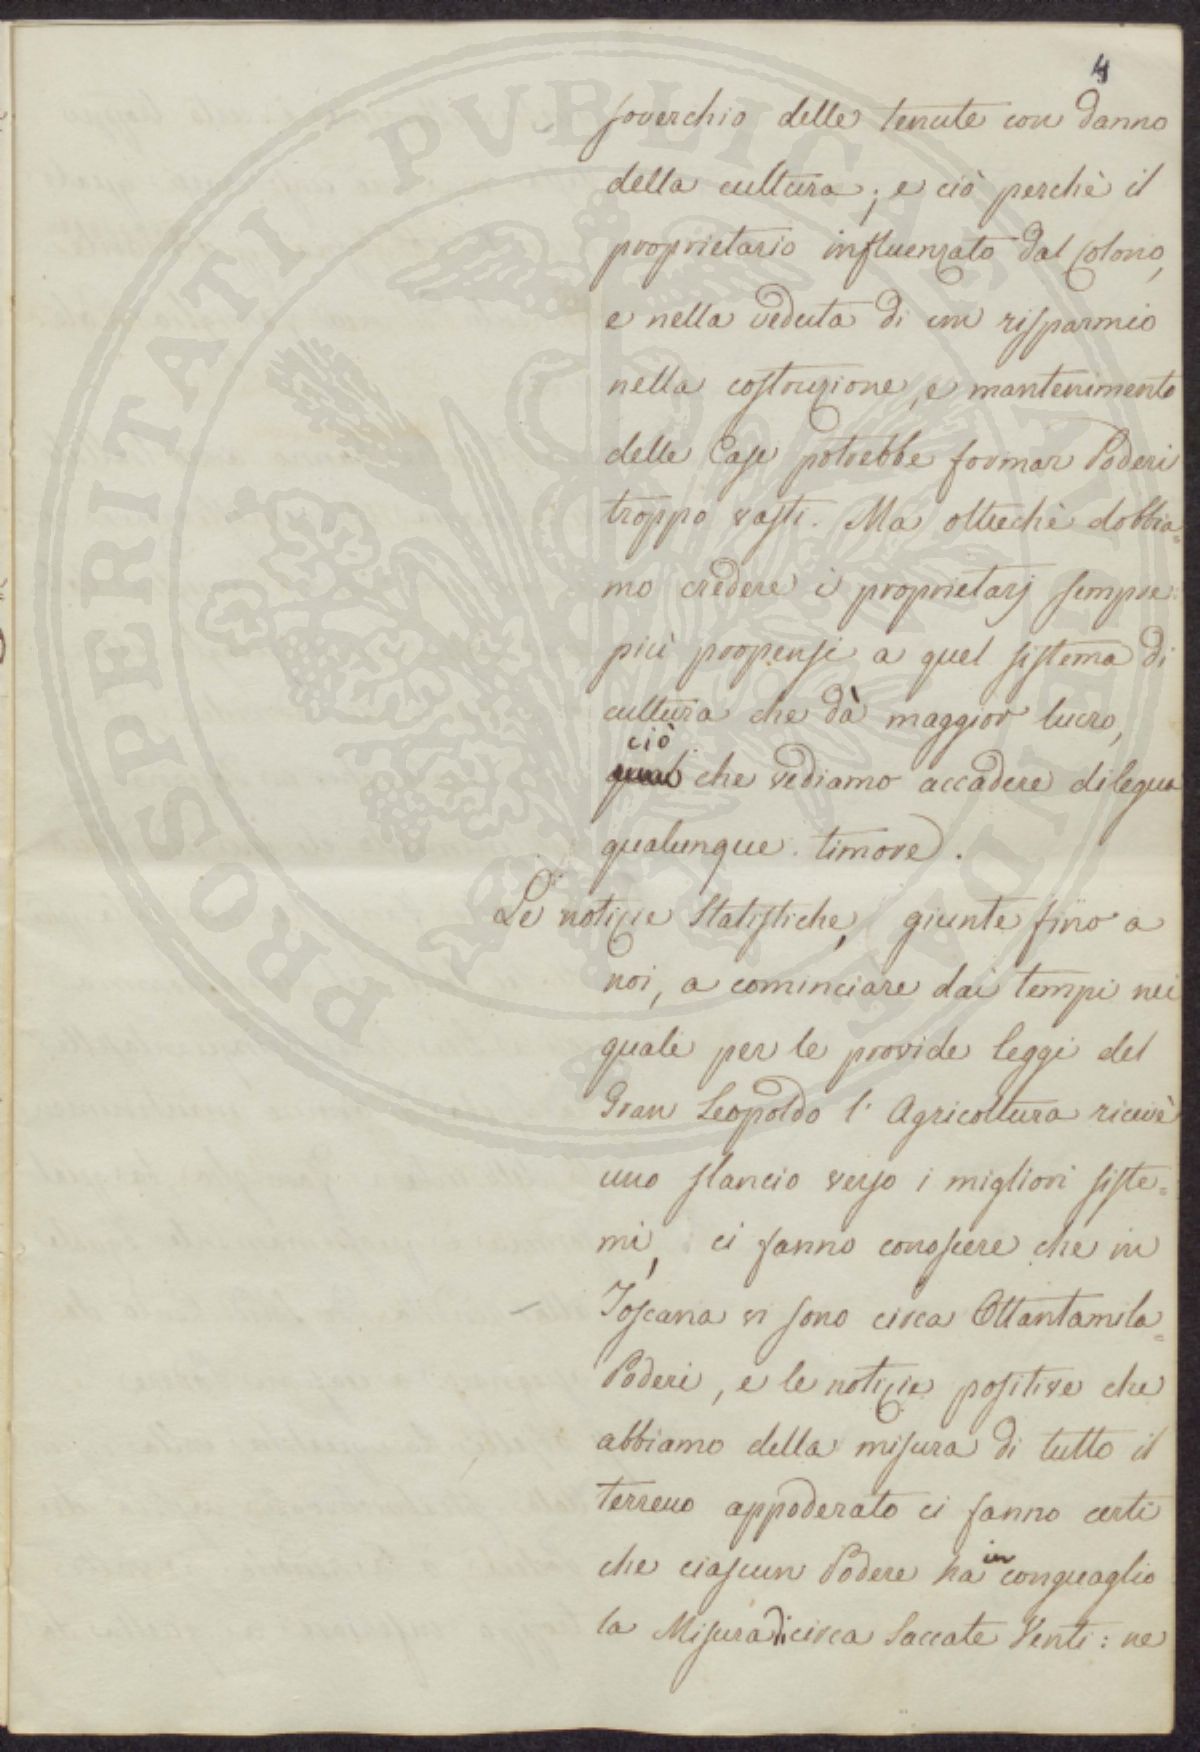 4
soverchio delle tenute con danno
della cultura; e ciò perchè il
proprietario influenzato dal Colono,
e nella veduta di un risparmio
nella costruzione, e mantenimento
delle Case potrebbe formar Poderi
troppo vasti. Ma oltrechè dobbia=
mo credere i proprietarj sempre
più propensi a quel sistema di
cultura che dà maggior lucro,
ciò
che vediamo accadere dilegua
qualunque timore.
Le notizie Statistiche, giunte fino a
noi, a cominciare dai tempi nei
quali per le provide leggi del
Gran Leopoldo l'Agricoltura ricevè
uno slancio verso i migliori siste=
mi, ci fanno conoscere che in
Toscana vi sono circa Ottantamila=
Poderi, e le notizie positive che
abbiamo della misura di tutto il
terreno appoderato ci fanno certi
che ciascun Podere ha in conguaglio
la Misura di circa Saccate Venti: ne
PROSPERITATI PUBLICAE AUGENDAE